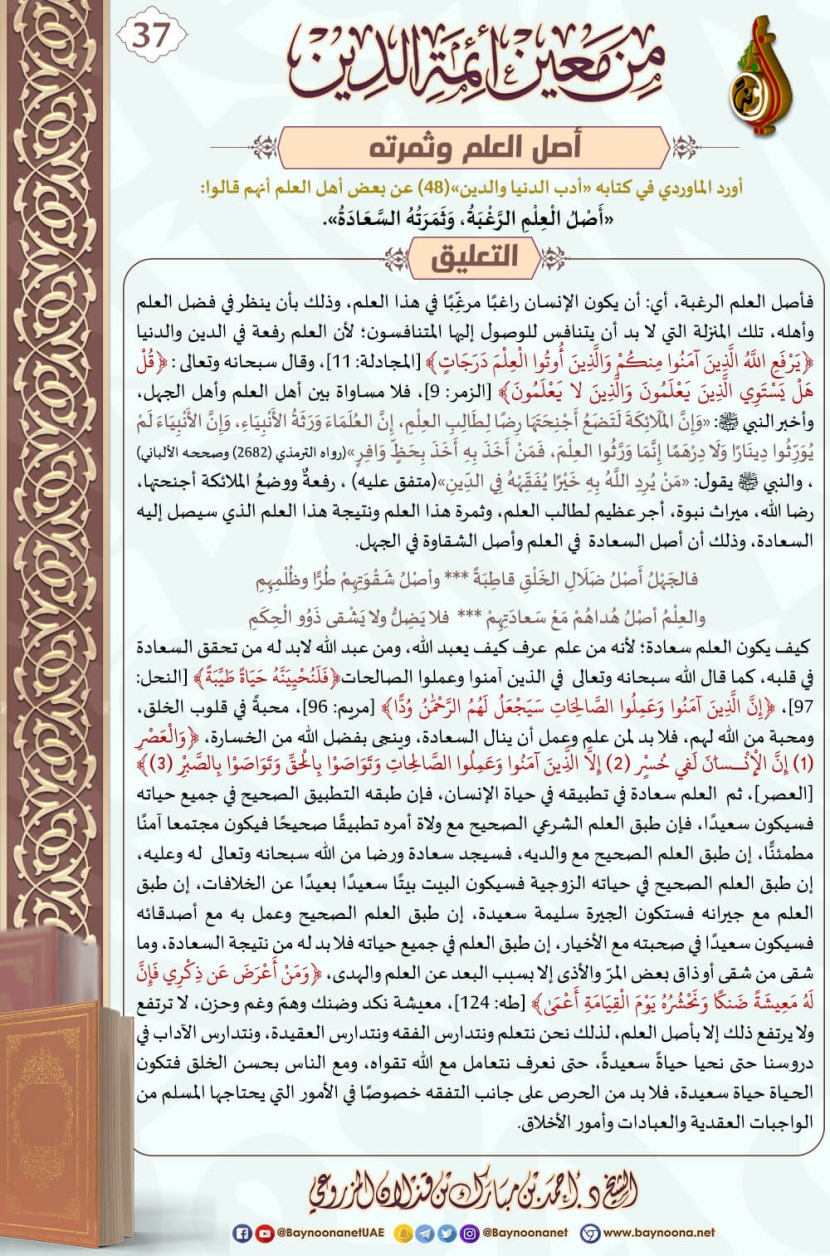 37
من معين أئمة الدين
أصل العلم وثمرته
أورد الماوردي في كتابه «أدب الدنيا والدين»(48) عن بعض أهل العلم أنهم قالوا:
«أَصْلُ الْعِلْمِ الرَّغْبَةُ، وَثَمَرَتُهُ السَّعَادَةُ».
التعليق
فأصل العلم الرغبة، أي: أن يكون الإنسان راغبًا مرغِّبًا في هذا العلم، وذلك بأن ينظر في فضل العلم
وأهله، تلك المنزلة التي لا بد أن يتنافس للوصول إليها المتنافسون؛ لأن العلم رفعة في الدين والدنيا
﴿يَرْفَعِ اللَّهُ الَّذِينَ آمَنُوا مِنكُمْ وَالَّذِينَ أُوتُوا الْعِلْمَ دَرَجَاتٍ﴾ [المجادلة: 11]، وقال سبحانه وتعالى : ﴿قُلْ
هَلْ يَسْتَوِي الَّذِينَ يَعْلَمُونَ وَالَّذِينَ لَا يَعْلَمُونَ﴾ [الزمر: 9]، فلا مساواة بين أهل العلم وأهل الجهل،
وأخبر النبي ﷺ: «وَإِنَّ المَلَائِكَةَ لَتَضَعُ أَجْنِحَتَهَا رِضًا لِطَالِبِ العِلْمِ، إِنَّ العُلَمَاءَ وَرَثَةُ الأَنْبِيَاءِ، وَإِنَّ الأَنْبِيَاءَ لَمْ
يُوَرِّثُوا دِينَارًا وَلَا دِرْهَمًا إِنَّمَا وَرَّثُوا العِلْمَ، فَمَنْ أَخَذَ بِهِ أَخَذَ بِحَظٍّ وَافِرٍ»(رواه الترمذي (2682) وصححه الألباني)
، والنبي ﷺ يقول: «مَنْ يُرِدِ اللَّهُ بِهِ خَيْرًا يُفَقِّهْهُ فِي الدِّينِ»(متفق عليه) ، رفعةٌ ووضعُ الملائكة أجنحتها،
رضا الله، ميراث نبوة، أجر عظيم لطالب العلم، وثمرة هذا العلم ونتيجة هذا العلم الذي سيصل إليه
السعادة، وذلك أن أصل السعادة في العلم وأصل الشقاوة في الجهل.
فالجَهْلُ أَصْلُ ضَلَالِ الخَلْقِ قاطِبَةً *** وأصْلُ شَقْوَتِهِمْ طُرًّا وظُلْمِهِمِ
والعِلْمُ أصْلُ هُداهُمْ مَعْ سَعادَتِهِمْ *** فلا يَضِلُّ ولا يَشْقى ذَوُو الْحِكَمِ
كيف يكون العلم سعادة؛ لأنه من علم عرف كيف يعبد الله، ومن عبد الله لابد له من تحقق السعادة
في قلبه، كما قال الله سبحانه وتعالى في الذين آمنوا وعملوا الصالحات﴿فَلَنُحْيِيَنَّهُ حَيَاةً طَيِّبَةً﴾ [النحل:
97]، ﴿إِنَّ الَّذِينَ آمَنُوا وَعَمِلُوا الصَّالِحَاتِ سَيَجْعَلُ لَهُمُ الرَّحْمَٰنُ وُدًّا﴾ [مريم: 96]، محبةً في قلوب الخلق،
ومحبة من الله لهم، فلا بد لمن علم وعمل أن ينال السعادة، وينجى بفضل الله من الخسارة، ﴿وَالْعَصْرِ
(1) إِنَّ الْإِنْسَانَ لَفِي خُسْرٍ (2) إِلَّا الَّذِينَ آمَنُوا وَعَمِلُوا الصَّالِحَاتِ وَتَوَاصَوْا بِالْحَقِّ وَتَوَاصَوْا بِالصَّبْرِ (3)﴾
[العصر]، ثم العلم سعادة في تطبيقه في حياة الإنسان، فإن طبقه التطبيق الصحيح في جميع حياته
فسيكون سعيدًا، فإن طبق العلم الشرعي الصحيح مع ولاة أمره تطبيقًا صحيحًا فيكون مجتمعا آمنًا
مطمئنًّا، إن طبق العلم الصحيح مع والديه، فسيجد سعادة ورضا من الله سبحانه وتعالى له وعليه،
إن طبق العلم الصحيح في حياته الزوجية فسيكون البيت بيتًا سعيدًا بعيدًا عن الخلافات، إن طبق
العلم مع جيرانه فستكون الجيرة سليمة سعيدة، إن طبق العلم الصحيح وعمل به مع أصدقائه
فسيكون سعيدًا في صحبته مع الأخيار، إن طبق العلم في جميع حياته فلا بد له من نتيجة السعادة، وما
شقى من شقى أو ذاق بعض المرّ والأذى إلا بسبب البعد عن العلم والهدى، ﴿وَمَنْ أَعْرَضَ عَن ذِكْرِي فَإِنَّ
لَهُ مَعِيشَةً ضَنكًا وَنَحْشُرُهُ يَوْمَ الْقِيَامَةِ أَعْمَىٰ﴾ [طه: 124]، معيشة نكد وضنك وهمّ وغم وحزن، لا ترتفع
ولا يرتفع ذلك إلا بأصل العلم، لذلك نحن نتعلم ونتدارس الفقه ونتدارس العقيدة، ونتدارس الآداب في
دروسنا حتى نحيا حياةً سعيدةً، حتى نعرف نتعامل مع الله تقواه، ومع الناس بحسن الخلق فتكون
الحياة حياة سعيدة، فلا بد من الحرص على جانب التفقه خصوصًا في الأمور التي يحتاجها المسلم من
الواجبات العقدية والعبادات وأمور الأخلاق.
الشيخ د. أحمد بن مبارك بن قذلان المزروعي
@BaynoonanetUAE @Baynoonanet www.baynoona.net